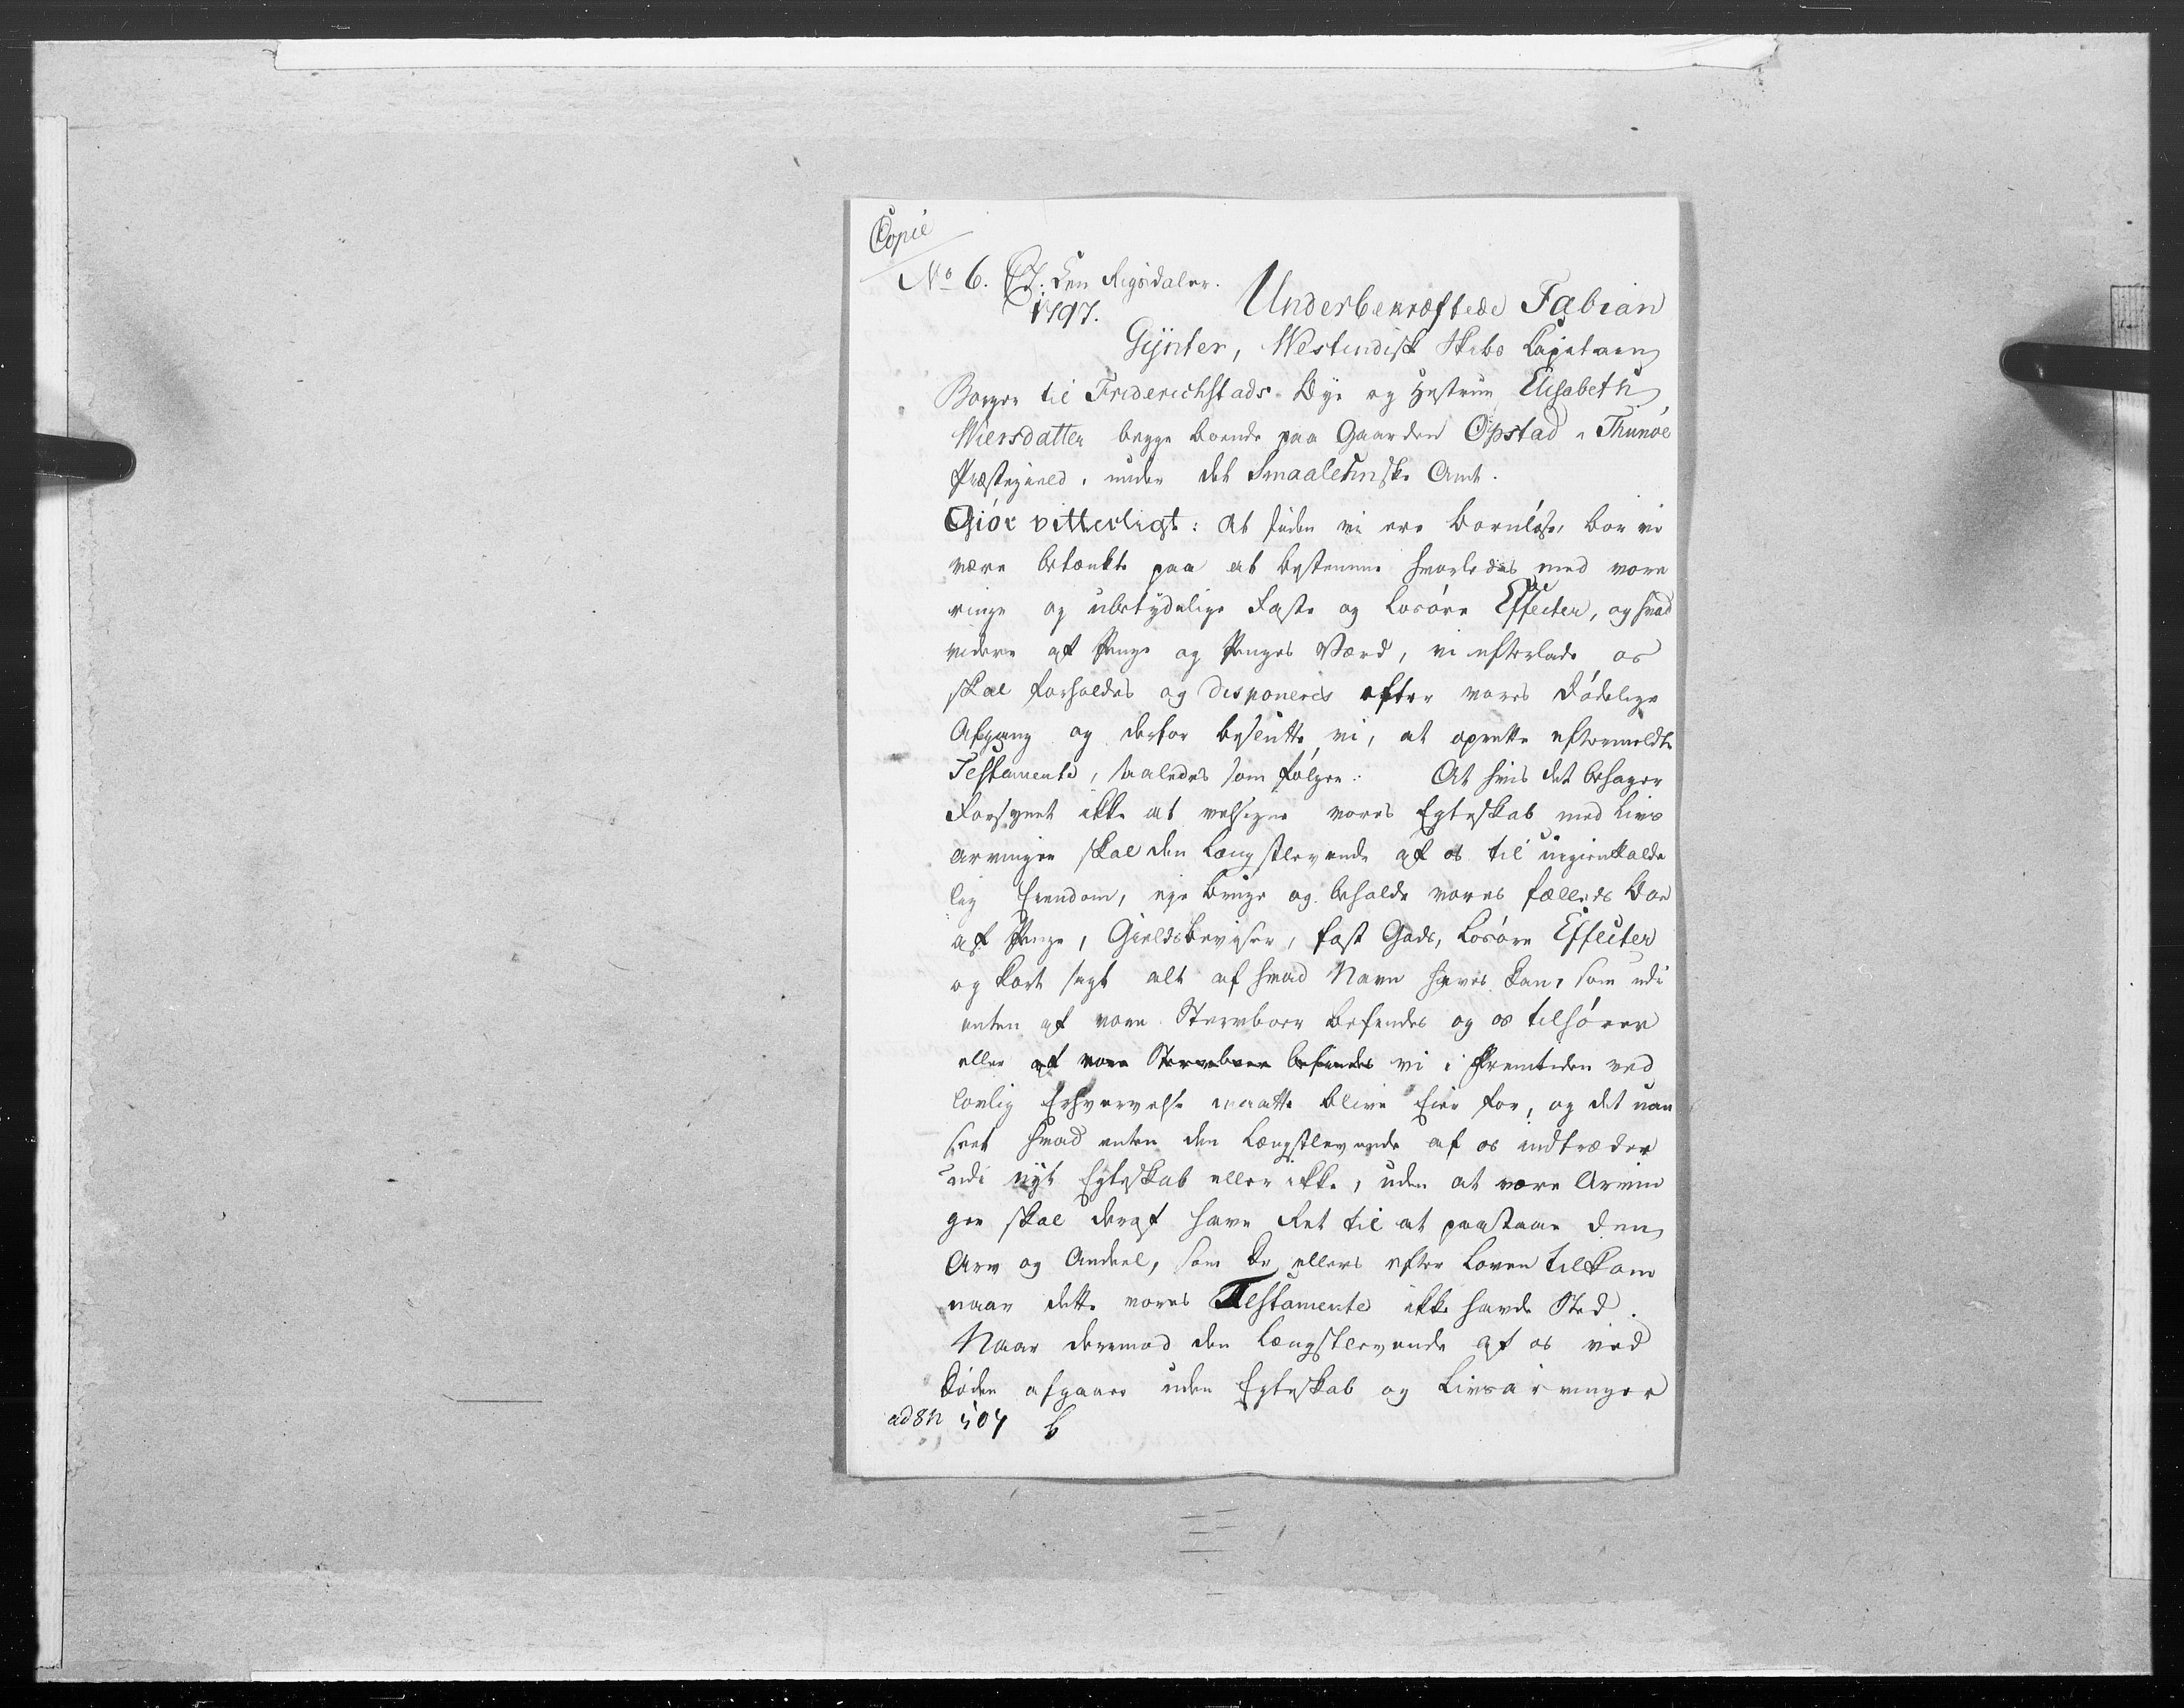 Copie
No 6. C7. Een Rigsdaler.
1797.
Underbekræftede Fabian
Gÿnter, Westindisk Skibs Capitaen
Borger til Friderichstads Bye og Hustrue Elisabeth
Niersdatter begge boende paa Gaarden Opstad i Thunöe
Præstegield, under det Smaalehnske Amt.
Giör vitterligt: At siden vi ere Barnlöse, bör vi
være betænkte paa at bestemme hvorledes med vore
ringe og ubetydelige Faste og Losöre Effecter, og hvad
videre af Penge og Penges Værd, vi efterlade os
skal forholdes og disponeres efter vores dödelige
Afgang og derfor besluttet vi, at oprette eftermeldte
Testamente, saaledes som fölger: At hvis det behager
Forsynet ikke at velsigne vores Egteskab med Livs
arvinger skal den Længstlevende af os til uigienkalde
lig Eiendom, eje bruge og beholde vores fælleds Boe
af Penge, Gieldsbeviser, fast Gods, Losöre Effecter
og kort sagt alt af hvad Navn haves kan, som udi
enten af vore Stervboer befindes og os tilhörer
eller af vore Stervboer befindes vi i Fremtiden ved
lovlig Erhvervelse maatte blive Eier for, og det uan
seet hvad enten den Længstlevende af os indtræder
udi nyt Egteskab eller ikke, uden at vore Arvin
ger skal deraf have Ret til at paastaae den
Arv og Andeel, som De ellers efter Loven tilkom
naar dette vores Testamente ikke havde Sted.
Naar derimod den Længstlevende af os ved
Döden afgaaer uden Egteskab og Livsarvinger
ad 8n 504 b